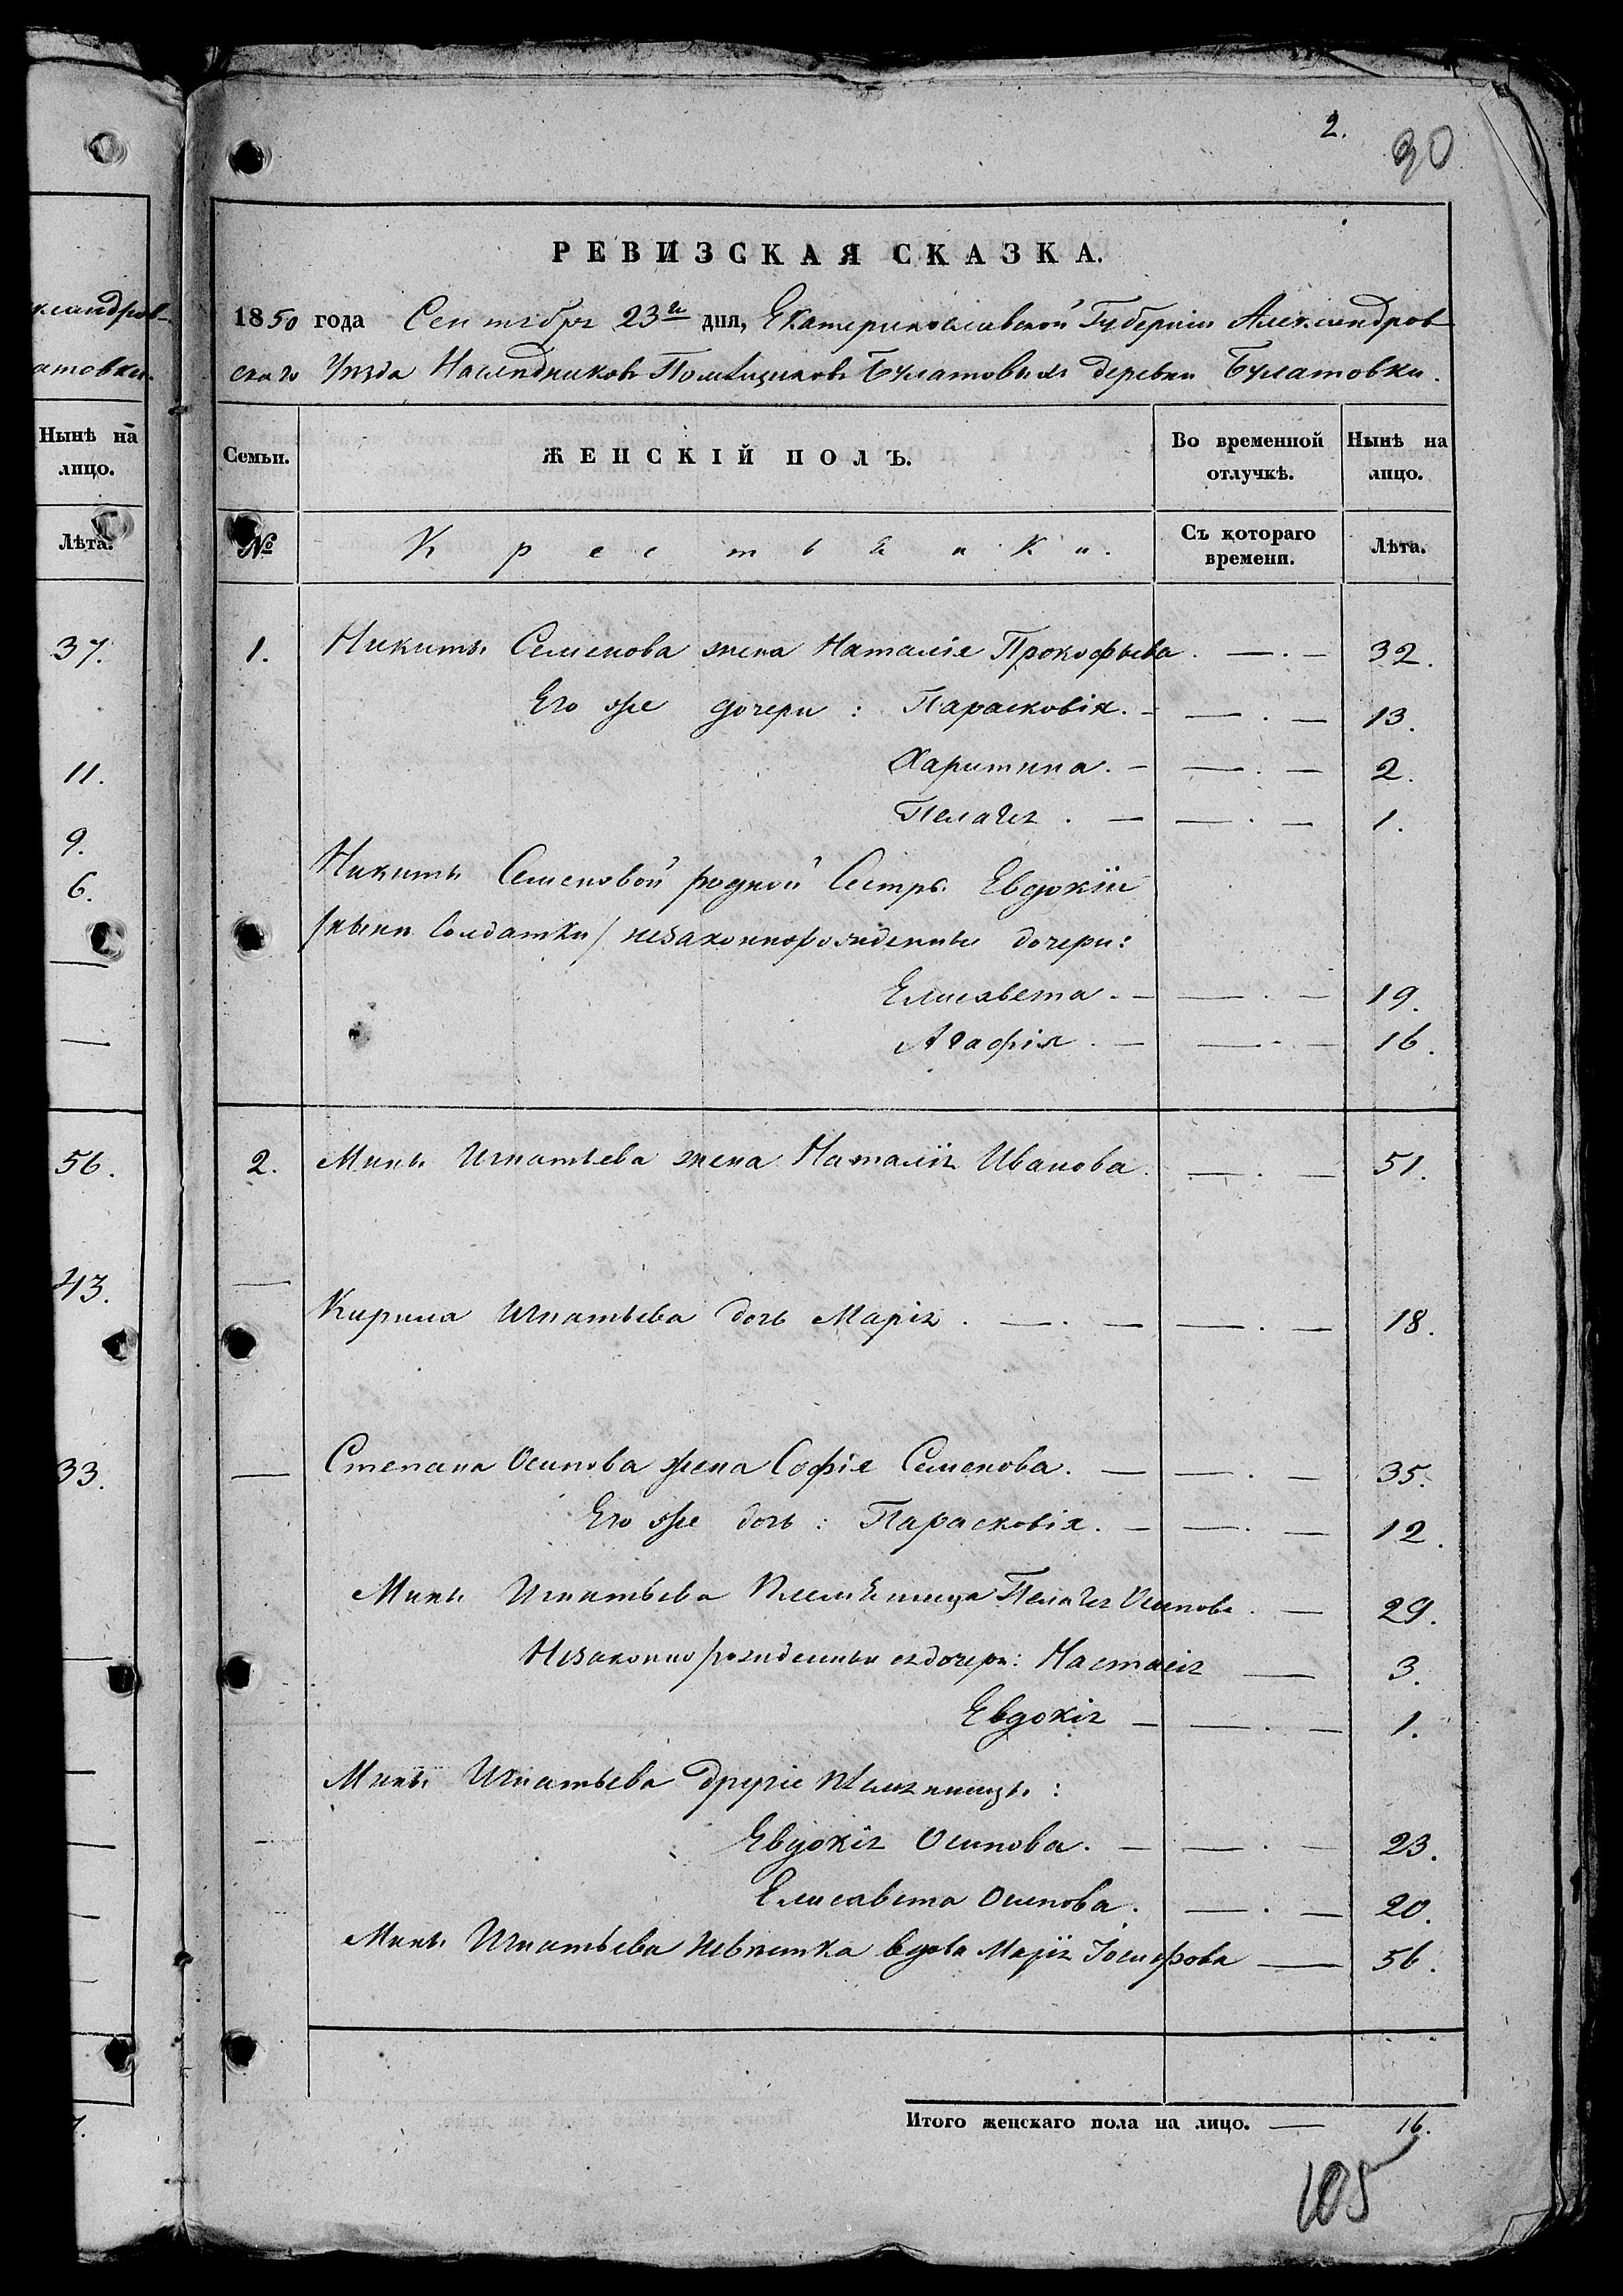 ксандров-
атовки.
Нынѣ на
лицо.
Лѣта.
37.
11.
9.
6.
56.
43.
33.
2.
30
РЕВИЗСКАЯ СКАЗКА.
1850 года Сентября 23го дня, Екатеринославской Губерніи Александров
скаго Уѣзда Наслѣдниковъ Помѣщиковъ Булатовыхъ деревни Булатовки.
Семьи. ЖЕНСКІЙ ПОЛЪ. Во временной отлучкѣ. Нынѣ на лицо.
№ Крестьянки. Съ котораго времени. Лѣта.
1. Никиты Семенова жена Наталія Прокофьева. — . — 32.
Его же дочери: Парасковія. — — . — 13.
Харитина. — — . — 2.
Пелагія. — — . — 1.
Никиты Семеновой родной Сестры Евдокіи
/нынѣ Солдатки/ незаконнорожденные дочери:
Елисавета. — — . — 19.
Агафія. — — . — 16.
2. Мины Игнатьева жена Наталія Иванова. — . — 51.
— Кирила Игнатьева дочь Марія. — . — — . — 18.
— Степана Осипова жена Софія Семенова. — — . — 35.
Его же дочь: Парасковія. — — . — 12.
Мины Игнатьева Племянница Пелагія Осипова. — 29.
Незаконнорожденные ея дочери: Настасія — 3.
Евдокія — — . — 1.
Мины Игнатьева другіе племянницы:
Евдокія Осипова. — — . — 23.
Елисавета Осипова. — . — 20.
Мины Игнатьева невѣстка вдова Марія Іосифова — 56.
Итого женскаго пола на лицо. — 16.
105